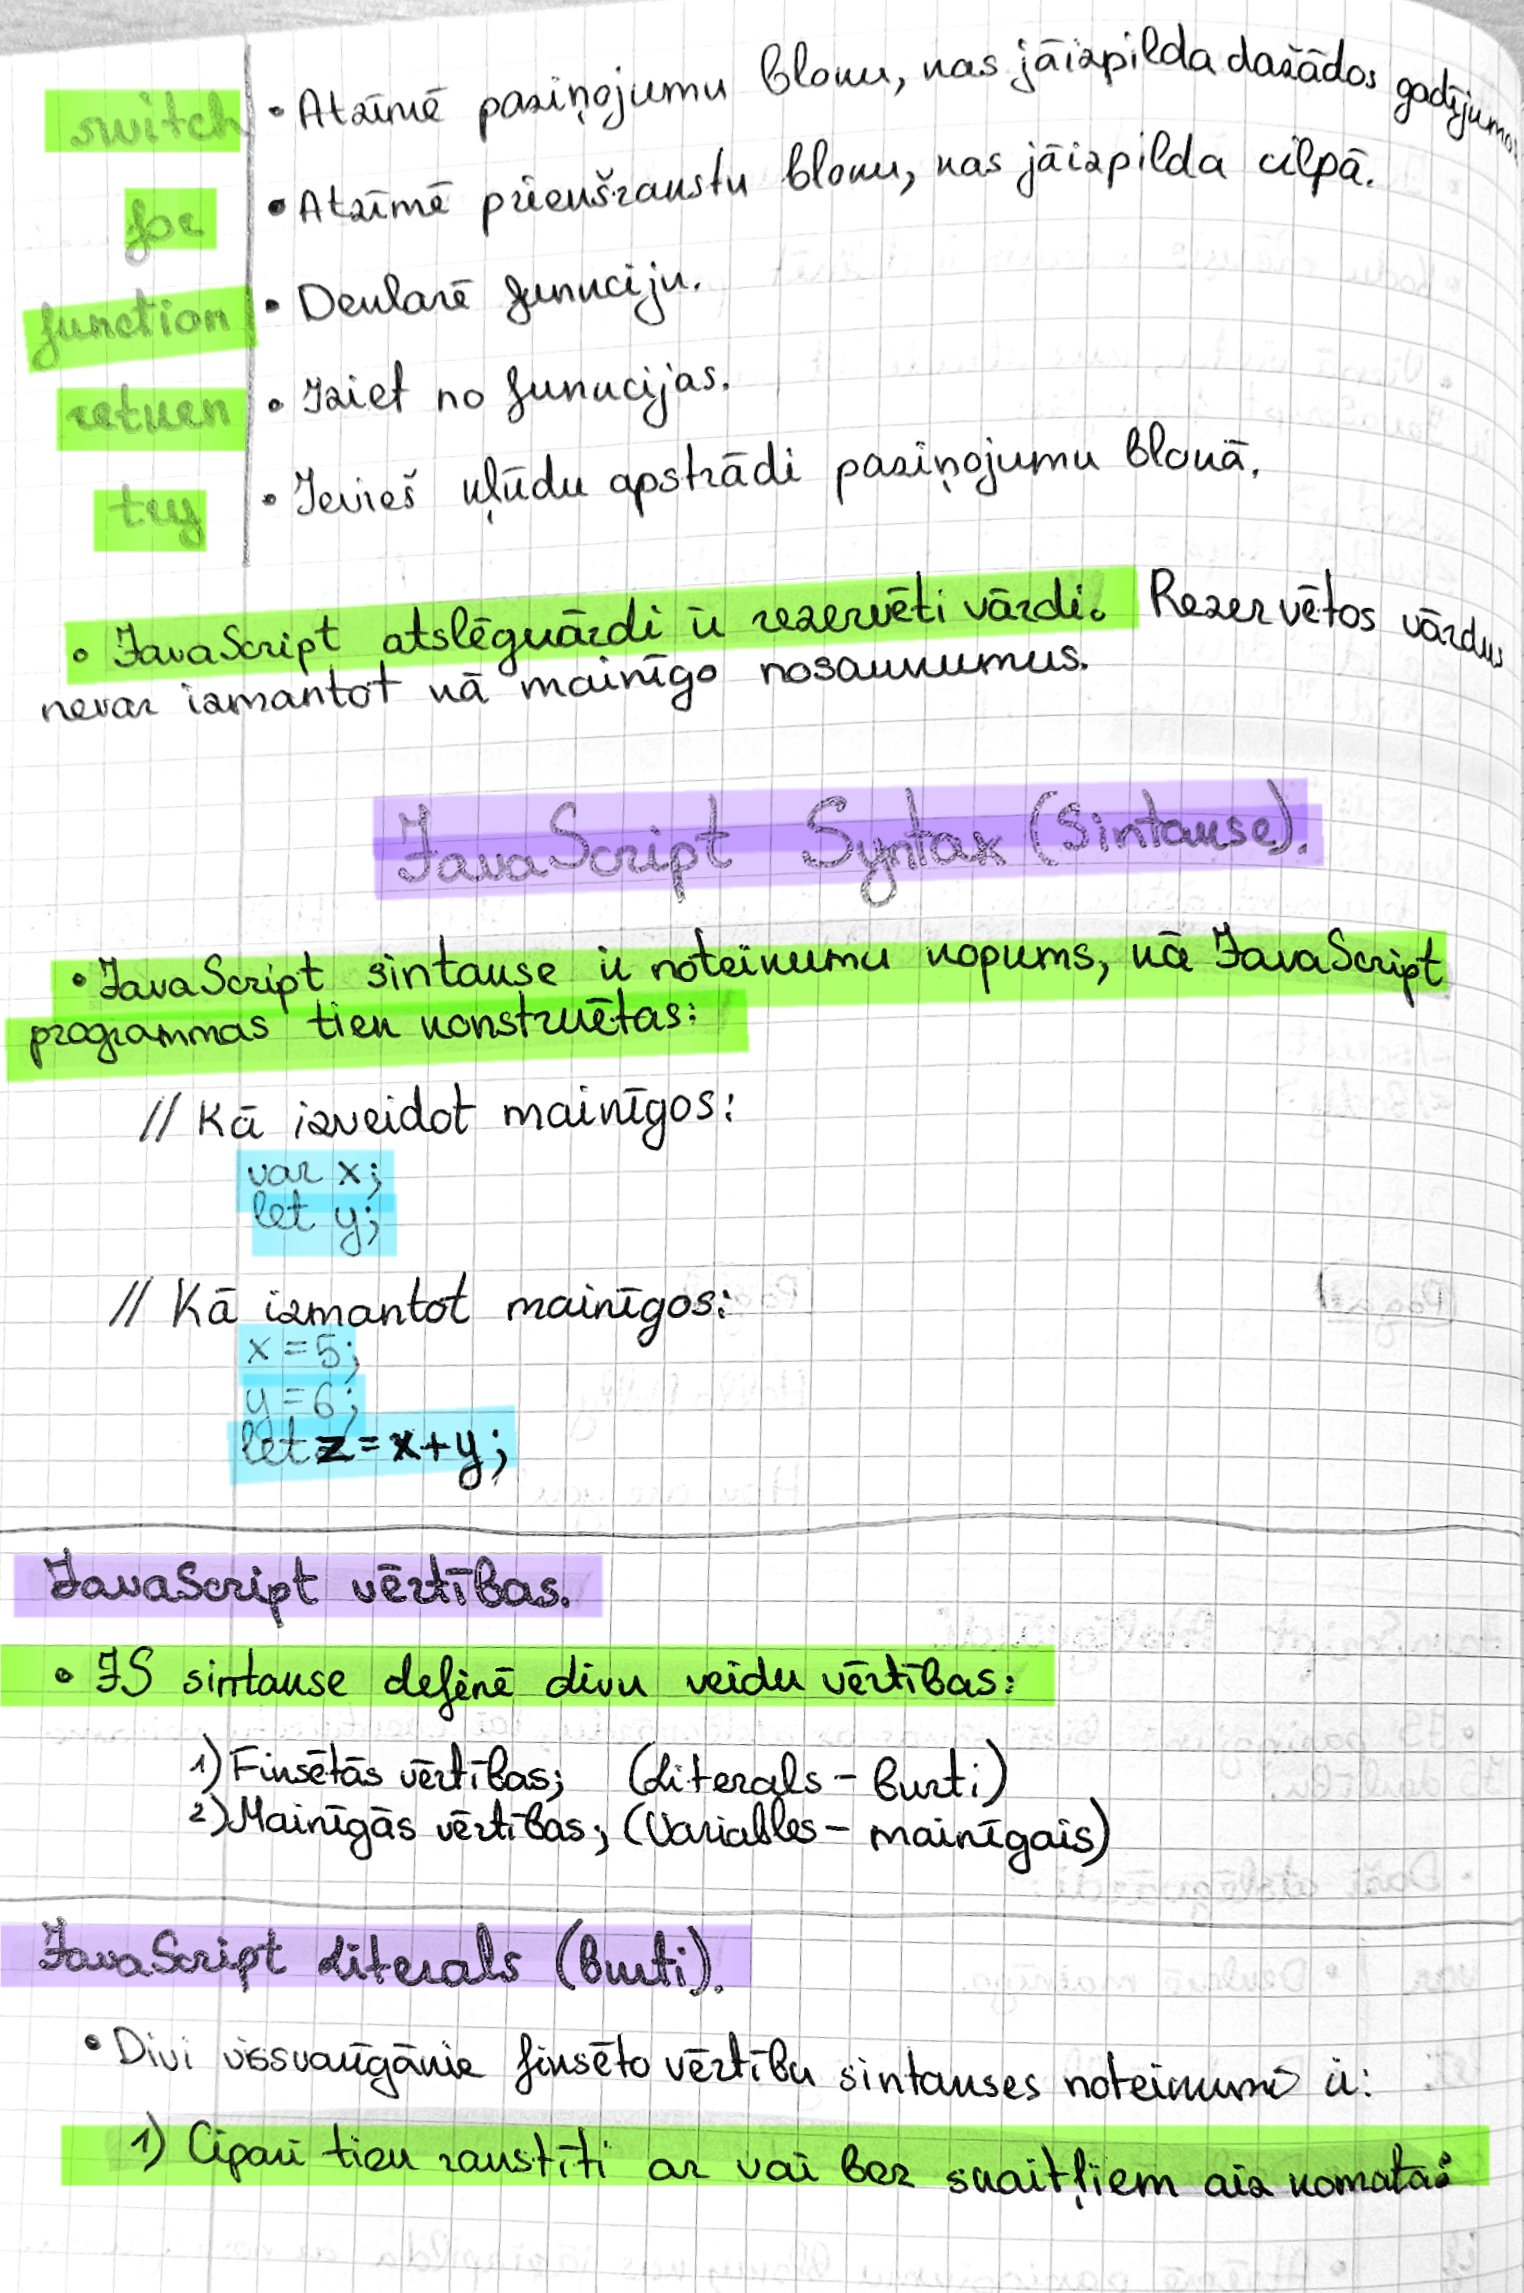 switch • Atzīmē paziņojumu bloku, kas jāizpilda dažādos gadījumos
for • Atzīmē priekšrakstu bloku, kas jāizpilda cilpā.
function • Deklarē funkciju.
return • Iziet no funkcijas.
try • Ievieš kļūdu apstrādi paziņojumu blokā.
• JavaScript atslēgvārdi ir rezervēti vārdi. Rezervētos vārdus
nevar izmantot kā mainīgo nosaukumus.
JavaScript Syntax (Sintakse).
• JavaScript sintakse ir noteikumu kopums, kā JavaScript
programmas tiek konstruētas:
// Kā izveidot mainīgos:
var x;
let y;
// Kā izmantot mainīgos:
x = 5;
y = 6;
let z = x + y;
JavaScript vērtības.
• JS sintakse definē divu veidu vērtības:
1) Fiksētās vērtības; (Literals - burti)
2) Mainīgās vērtības; (Variables - mainīgais)
JavaScript Literals (burti).
• Divi vissvarīgākie fiksēto vērtību sintakses noteikumi ir:
1) Cipari tiek rakstīti ar vai bez skaitļiem aiz komata: